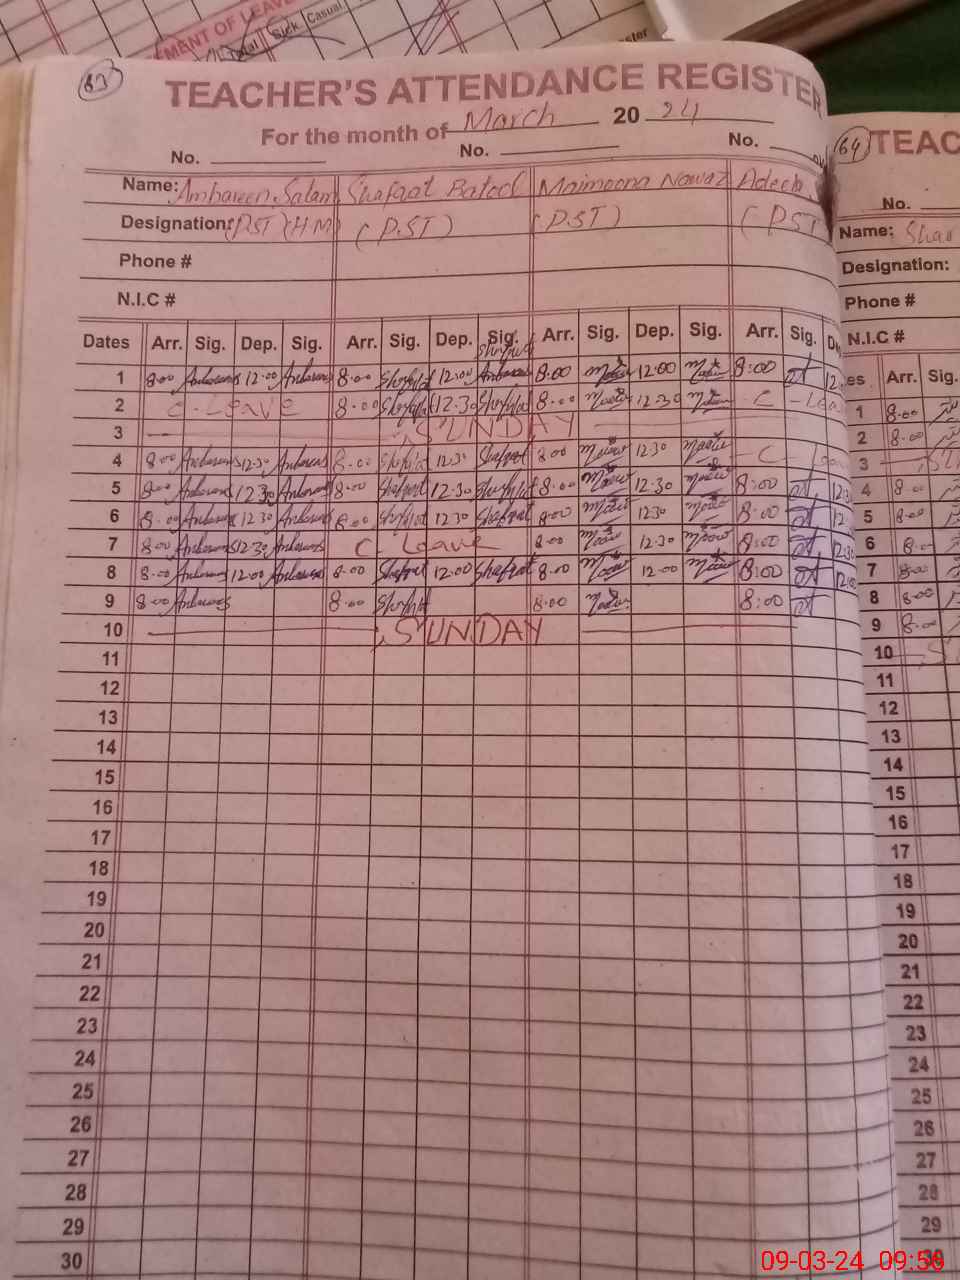 MENT OF LEAVE
Total Sick Casual
83
TEACHER'S ATTENDANCE REGISTER
For the month of March 20 24
No. No. No.
Name: Ambareen Salam Shafqat Batool Maimoona Nawaz Adeela
Designation: (PST) (H.M) (P.ST) (P.ST) (PST
Phone #
N.I.C #
Dates Arr. Sig. Dep. Sig. Arr. Sig. Dep. Sig. Arr. Sig. Dep. Sig. Arr. Sig. De
1 8.00 12.00 8.00 Shafqat 12.00 Shafqat 8.00 12.00 8:00 12
2 C-Leave 8.00 Shafqat 12.30 Shafqat 8.00 12.30 C-Lea
3 SUNDAY
4 8.00 12.30 8.00 Shafqat 12.30 Shafqat 8.00 12.30 C-Lea
5 8.00 12.30 8.00 Shafqat 12.30 Shafqat 8.00 12.30 8:00 12.3
6 8.00 12.30 8.00 Shafqat 12.30 Shafqat 8.00 12.30 8:00 12.
7 8.00 12.30 C-Leave 8.00 12.30 8:00 12.30
8 8.00 12.00 8.00 Shafqat 12.00 Shafqat 8.00 12.00 8:00 12.0
9 8.00 8.00 Shafqat 8.00 8:00
10 SUNDAY
11
12
13
14
15
16
17
18
19
20
21
22
23
24
25
26
27
28
29
30
64 TEAC
No.
Name:
Designation:
Phone #
N.I.C #
es Arr. Sig.
1 8.00
2 8.00
3 SU
4 8.00
5 8.00
6 8.00
7 8.00
8 8.00
9 8.00
10 S
11
12
13
14
15
16
17
18
19
20
21
22
23
24
25
26
27
28
29
30
09-03-24 09:56